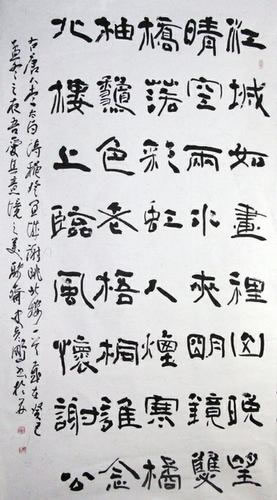 江城如畫裡山晚望
晴空兩水夾明鏡雙
橋落彩虹人煙寒橘
柚龝色老梧桐誰念
北樓上臨風懷謝公
唐人李太白詩秋登宣城謝朓北樓一首歲在癸巳
之夜吾愛其意境之美